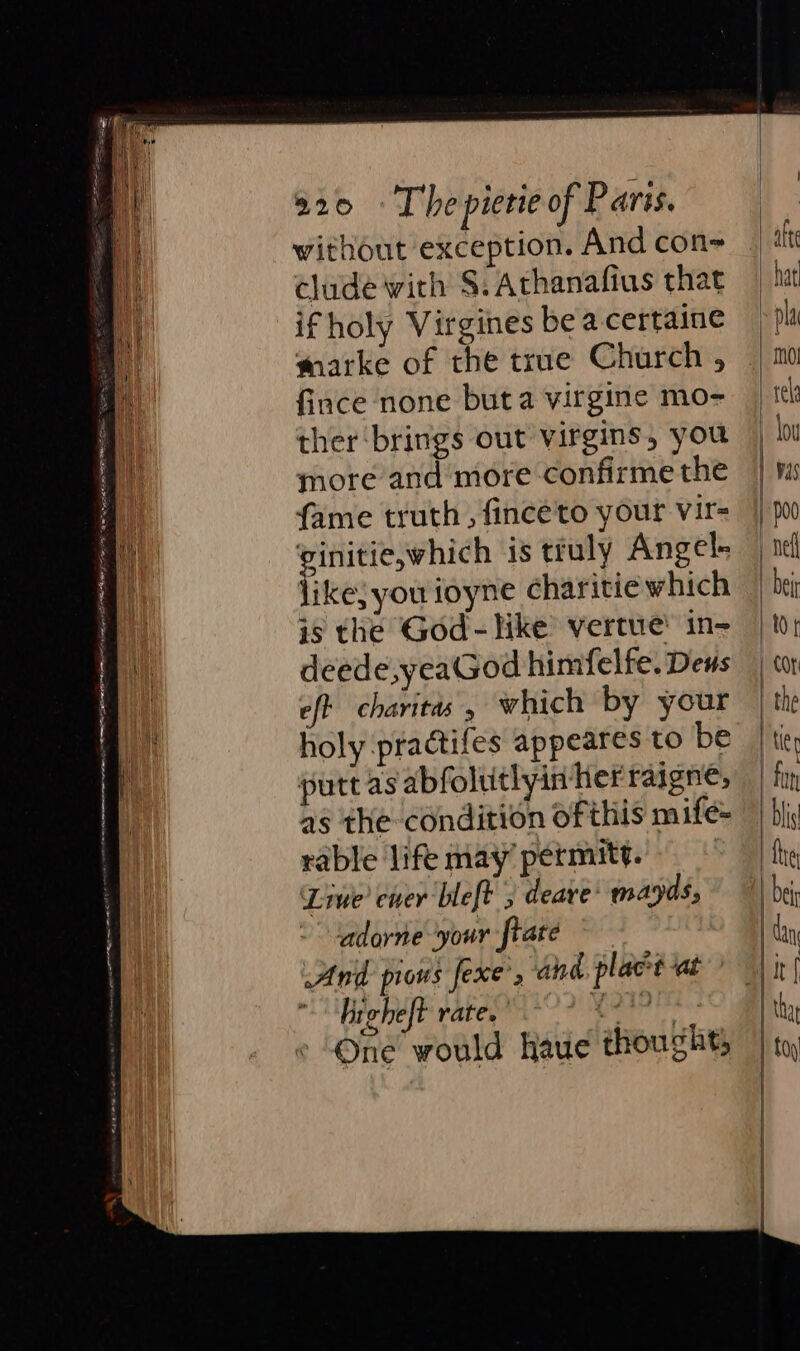 220 The pietie of Paris.
without exception. And con-
clude with S. Athanaſius that
if holy Virgines be a certaine
marke of the true Church,
ſince none but a virgine mo-
ther brings out virgins, you
more and more confirme the
ſame truth, ſince to your vir-
ginitie, which is truly Angel-
like, you ioyne charitie which
is the God-like vertue in-
deede, yea God himſelfe. Deus
eſt charitas, which by your
holy practiſes appeares to be
putt as abſolutly in her raigne,
as the condition of this miſe-
rable life may permitt.
Liue euer bleſt, deare mayds,
adorne your ſtate
And pious ſexe, and plac't at
higheſt rate.
One would haue thought,
afte
hat
pla
mo
rela
lou
vas
poo
neſſ
bein
to
cor
the
tie
fun
bliſ
ſtre
bein
dan
it ſ
that
too